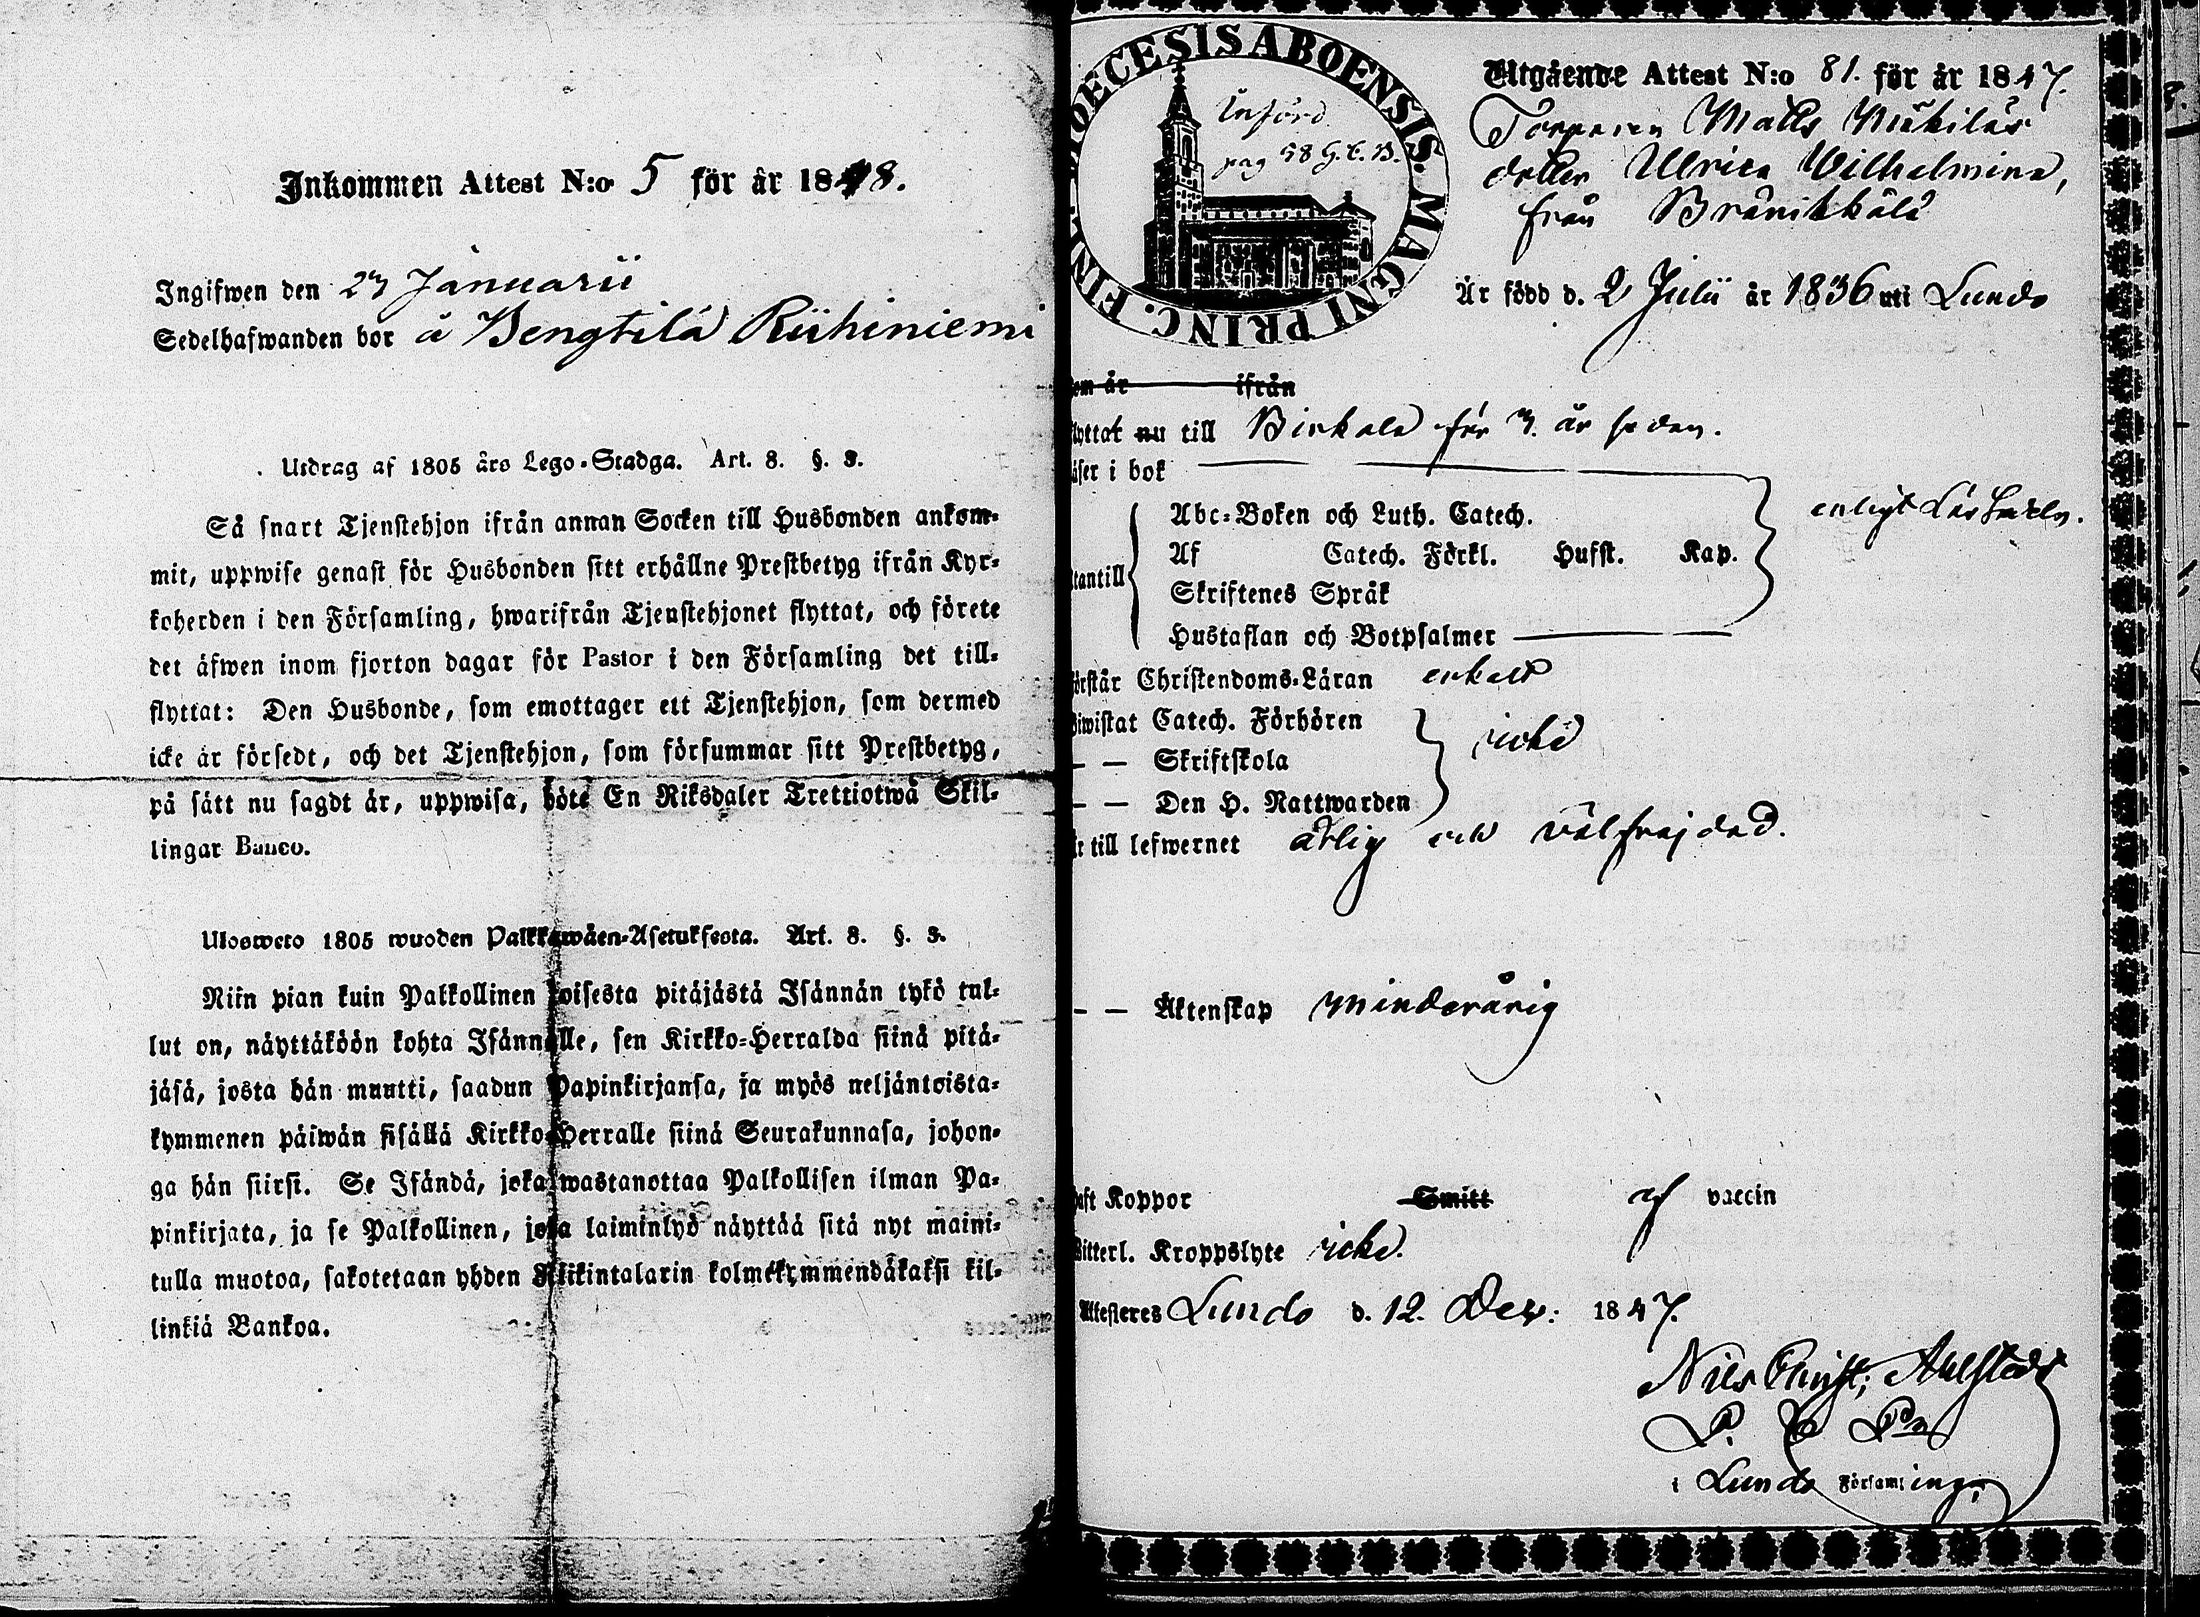 Inkommen Attest N:o 5 för år 1848.
Ingifwen den 23 Januarii
Sedelhafwanden bor å Bengtilä Riihiniemi
Utdrag af 1805 års Lego-Stadga. Art. 8. §. 3.
Så snart Tjenstehjon ifrån annan Socken till Husbonden ankom-
mit, uppwise genast för Husbonden sitt erhållne Prestbetyg ifrån Kyr-
koherden i den Församling, hwarifrån Tjenstehjonet flyttat, och förete
det äfwen inom fjorton dagar för Pastor i den Församling det till-
flyttat: Den Husbonde, som emottager ett Tjenstehjon, som dermed
icke är försedt, och det Tjenstehjon, som försummar sitt Prestbetyg,
på sätt nu sagdt är, uppwisa, böte En Riksdaler Trettiotwå Skil-
lingar Banco.
Ulosweto 1805 wuoden Palkkawäen-Asetuksesta. Art. 8. §. 3.
Niin pian kuin Palkollinen toisesta pitäjästä Isännän tykö tul-
lut on, näyttäköön kohta Isännälle, sen Kirkko-Herralda siinä pitä-
jäsä, josta hän muutti, saadun Papinkirjansa, ja myös neljäntoista-
kymmenen päiwän sisällä Kirkko-Herralle siinä Seurakunnasa, johon-
ga hän siirsi. Se Isändä, joka wastanottaa Palkollisen ilman Pa-
pinkirjata, ja se Palkollinen, joka laiminlyö näyttää sitä nyt maini-
tulla muotoa, sakotetaan yhden Riikintalarin kolmekymmendäkaksi kil-
linkiä Bankoa.
DIOECESIS ABOENSIS. MAGNI PRINC. FINL.
Införd
pag 58 G. C. B.
Utgående Attest N:o 81. för år 1847.
Torparen Matts Mikiläs
dotter Ulrica Wilhelmina,
från Bränikkälä
Är född d. 2 Julii år 1836 uti Lundo
som är ifrån
flyttat nu till Birkala för 3. år sedan.
läser i bok
Abc-Boken och Luth. Catech.
Af Catech. Förkl. Husst. Kap.
utantill
Skriftenes Språk
Hustaflan och Botpsalmer
enligt Läs Sedeln.
förstår Christendoms-Läran enkelt
Biwistat Catech. Förhören
— — Skriftskola
— — Den H. Nattwarden
icke
är till lefwernet ärlig och välfrejdad.
— — Äktenskap minderårig
haft Koppor Smitt af vaccin
Witterl. Kroppslyte icke.
Attesteres Lundo d. 12. Dec: 1847.
Nils Christ: Ahlstedt
i Lundo Församling.